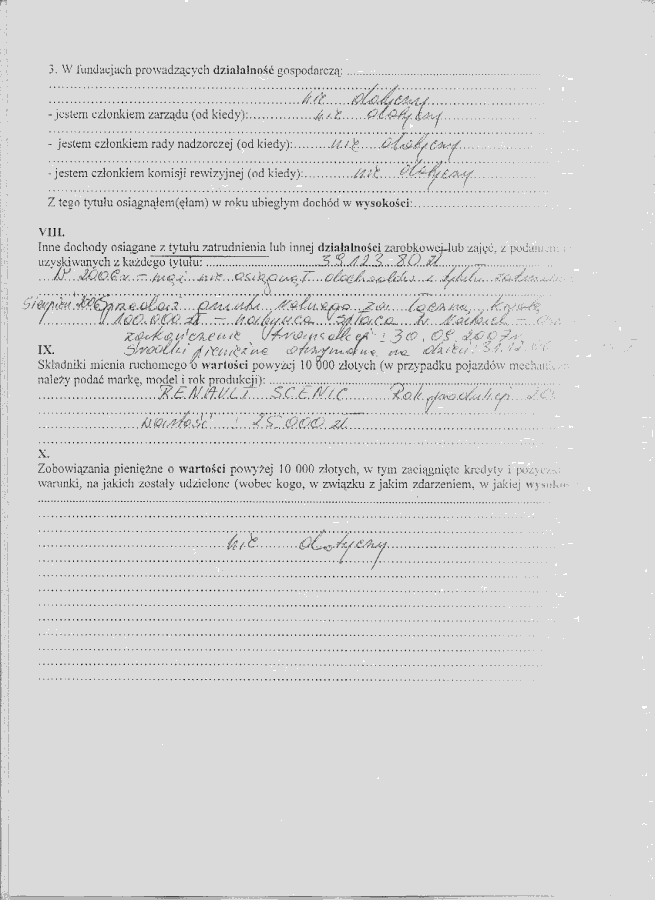 3. W fundacjach prowadzących działalność gospodarczą:
nie dotyczy
- jestem członkiem zarządu (od kiedy): nie dotyczy
- jestem członkiem rady nadzorczej (od kiedy): nie dotyczy
- jestem członkiem komisji rewizyjnej (od kiedy): nie dotyczy
Z tego tytułu osiągnąłem(ęłam) w roku ubiegłym dochód w wysokości:
VIII.
Inne dochody osiągane z tytułu zatrudnienia lub innej działalności zarobkowej lub zajęć, z
uzyskiwanych z każdego tytułu: 39123-80 zł
W 2006r - mąż nie osiągnął dochodów z tytułu
Sierpień Sprzedaż gruntu rolnego za łączną kwotę
100.000 zł - nabywca spłaca w ratach -
zakończenie transakcji: 30.09.2007r
Środki pieniężne otrzymane na dzień: 31.12.
IX.
Składniki mienia ruchomego o wartości powyżej 10 000 złotych (w przypadku pojazdów
należy podać markę, model i rok produkcji):
RENAULT SCENIC Rok produkcji
wartość : 25 000 zł
X.
Zobowiązania pieniężne o wartości powyżej 10 000 złotych, w tym zaciągnięte kredyty i
warunki, na jakich zostały udzielone (wobec kogo, w związku z jakim zdarzeniem, w jakiej
nie dotyczy